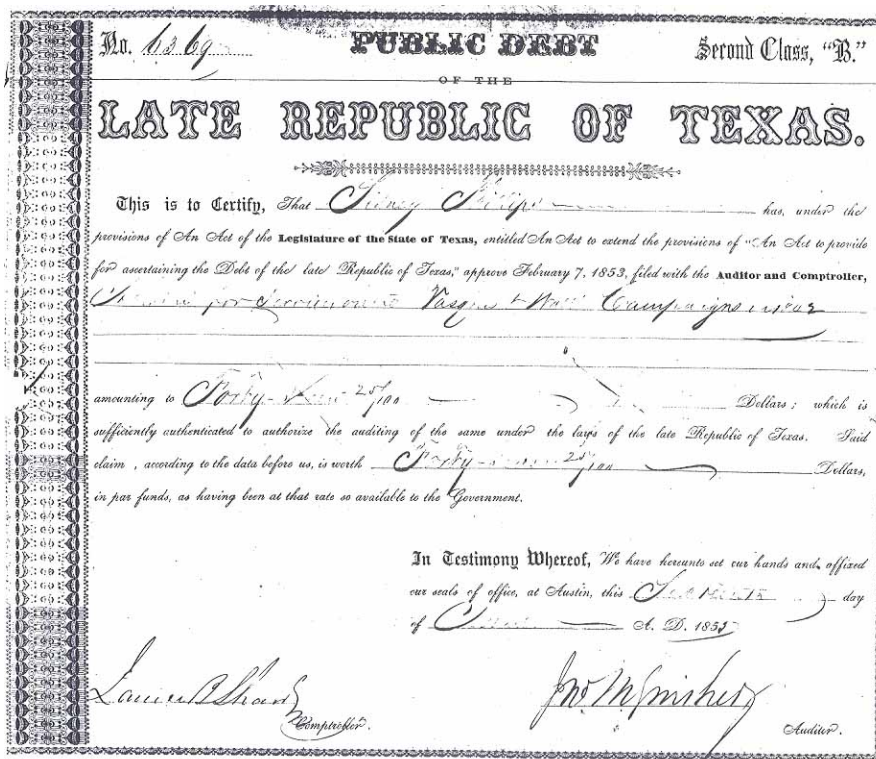 No. 6369 PUBLIC DEBT Second Class, "B."
OF THE
LATE REPUBLIC OF TEXAS.
This is to Certify, That Sidney Phillips has, under the
provisions of An Act of the Legislature of the State of Texas, entitled An Act to extend the provisions of "An Act to provide
for ascertaining the Debt of the late Republic of Texas," approve February 7, 1853, filed with the Auditor and Comptroller,
for Services Vasquez & Woll Campaigns in 1842
amounting to Forty- 25/100 Dollars; which is
sufficiently authenticated to authorize the auditing of the same under the laws of the late Republic of Texas. Said
claim, according to the data before us, is worth Forty- 25/100 Dollars,
in par funds, as having been at that rate so available to the Government.
In Testimony Whereof, We have hereunto set our hands and affixed
our seals of office, at Austin, this day
of A. D. 1853
James B Shaw
Comptroller.
Auditor.